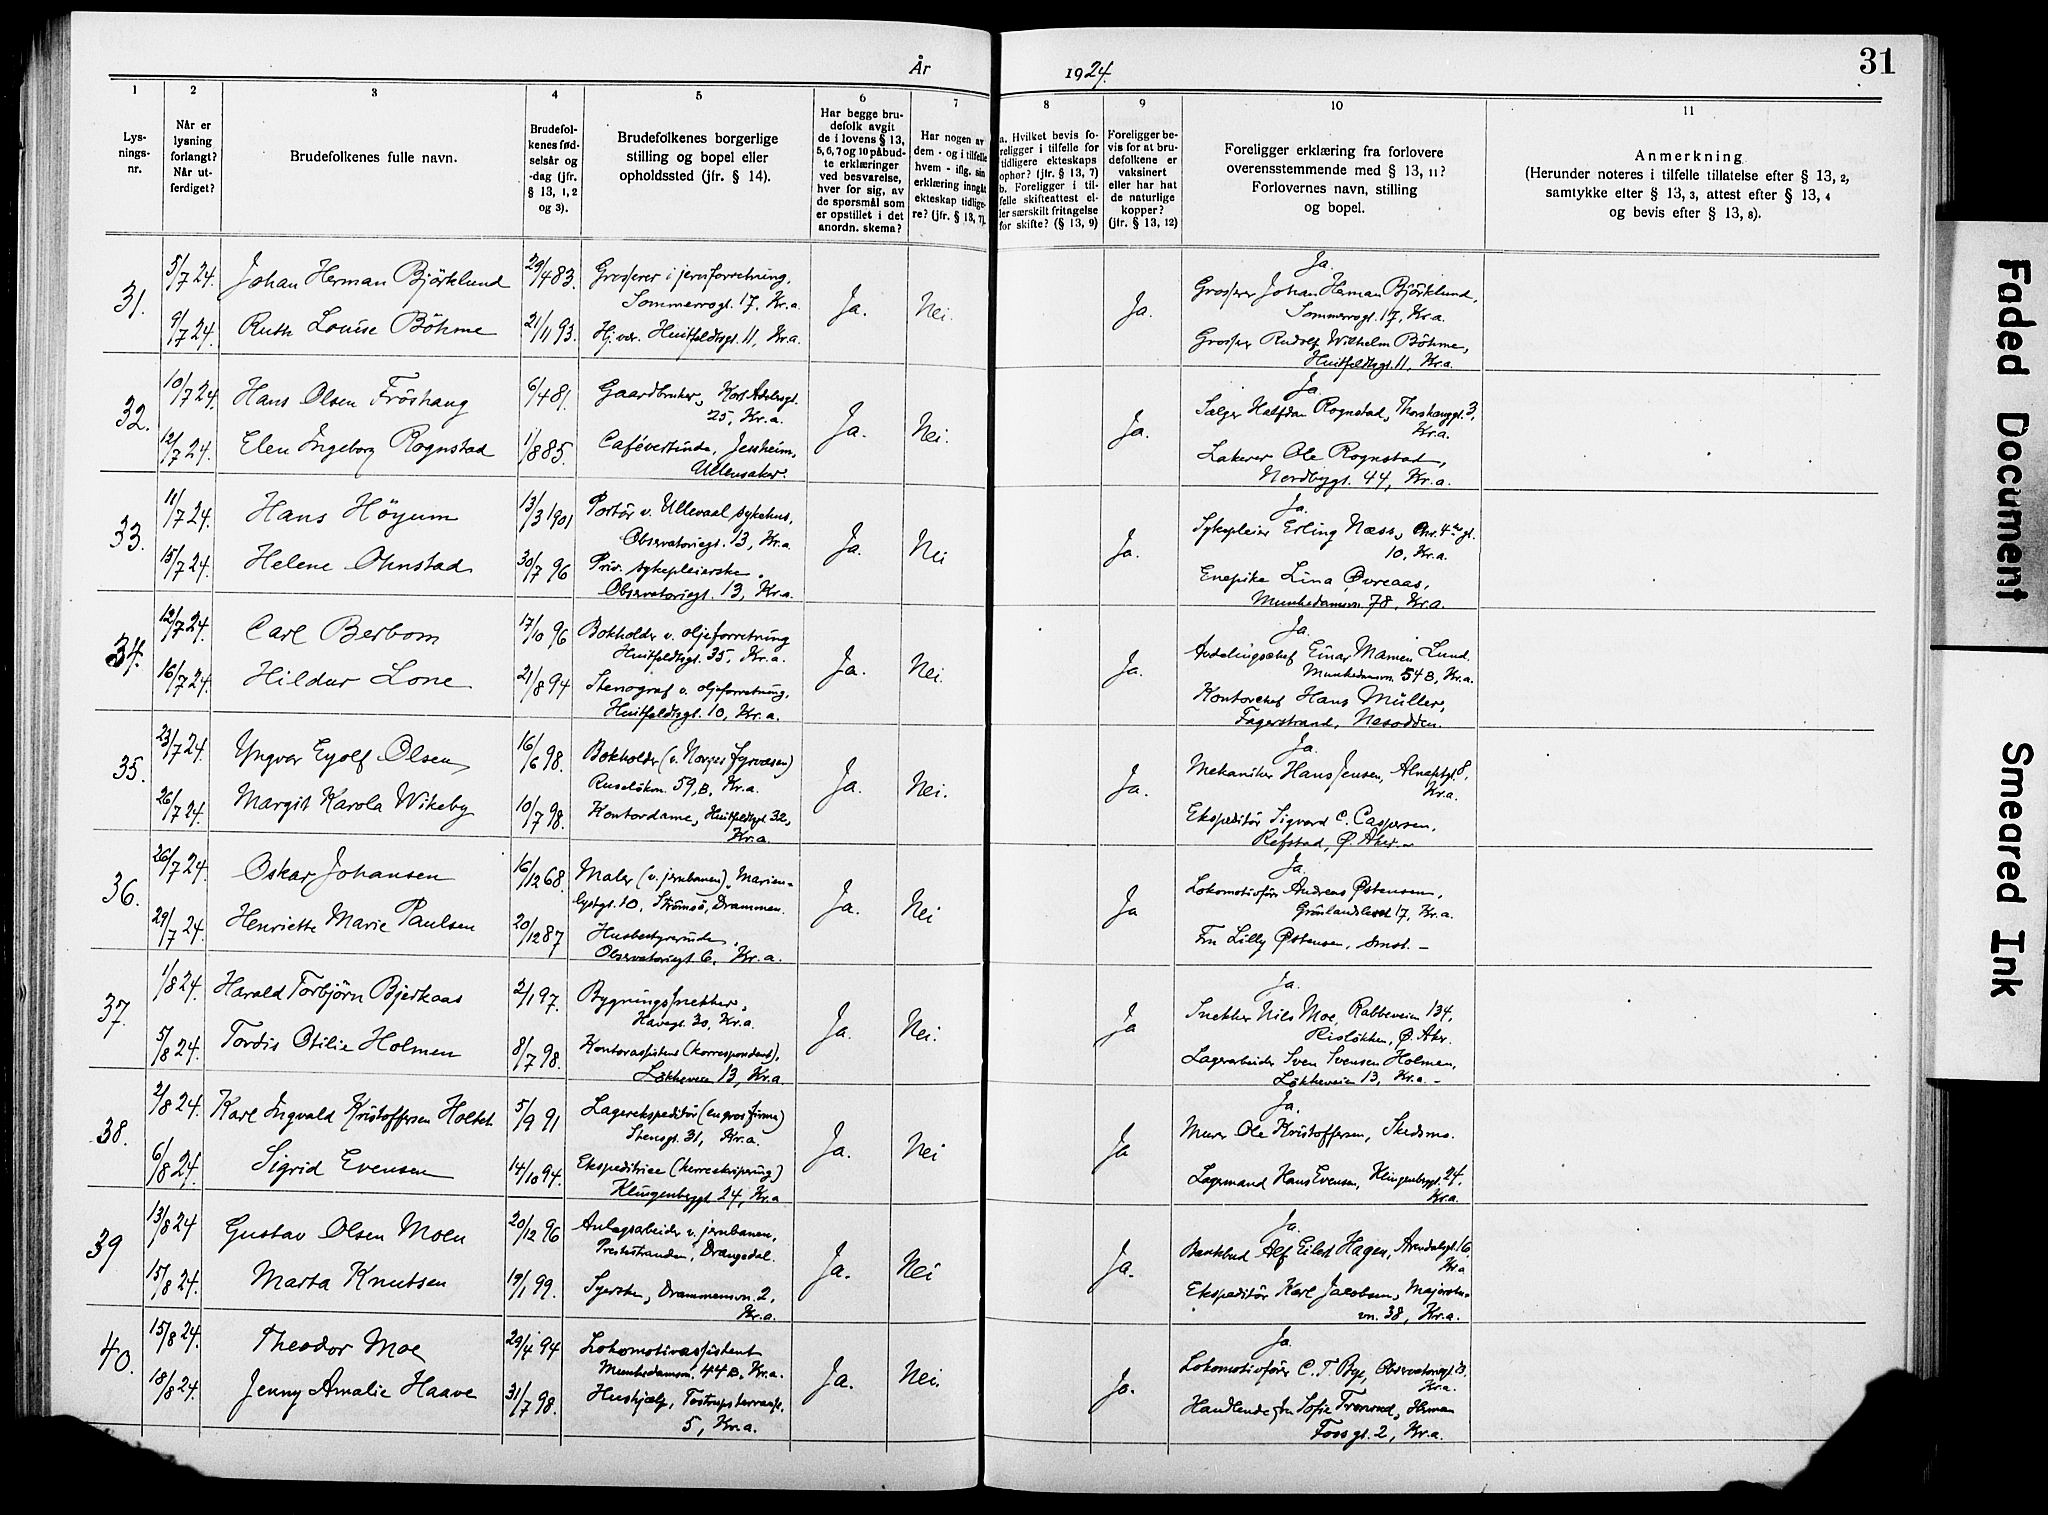 År
1924.
31
1
2
3
4
5
6
7
8
9
10
11
Lys-
nings-
nr.
Når er
lysning
forlangt?
Når ut-
ferdiget?
Brudefolkenes fulle navn.
Brudefol-
kenes fød-
selsår og
-dag (jfr.
§ 13, 1, 2
og 3).
Brudefolkenes borgerlige
stilling og bopel eller
opholdssted (jfr. § 14).
Har begge bru-
defolk avgit
de i lovens § 13,
5, 6, 7 og 10 påbud-
te erklæringer
ved besvarelse,
hver for sig, av
de spørsmål som
er opstillet i det
anordn. skema?
Har nogen av
dem - og i tilfelle
hvem - iflg. sin
erklæring inngått
ekteskap tidlige-
re? (jfr. § 13, 7).
a. Hvilket bevis fo-
religger i tilfelle for
tidligere ekteskaps
ophør? (jfr. § 13, 7)
b. Foreligger i til-
felle skifteattest el-
ler særskilt fritagelse
for skifte? (§ 13, 9)
Foreligger be-
vis for at bru-
defolkene er
vaksinert
eller har hat
de naturlige
kopper?
(jfr. § 13, 12)
Foreligger erklæring fra forlovere
overensstemmende med § 13, 11?
Forlovernes navn, stilling
og bopel.
Anmerkning
(Herunder noteres i tilfelle tillatelse efter § 13, 2,
samtykke efter § 13, 3, attest efter § 13, 4
og bevis efter § 13, 8).
31.
5/7 24.
Johan Herman Björklund
29/4 83.
Grosserer i jernforretning,
Sommerrogt. 17, Kr.a.
9/7 24.
Ruth Louise Böhme
21/11 93.
Hj.vær. Huitfeldtsgt. 11, Kr.a.
Ja.
Nei.
Ja.
Ja.
Grosserer Johan Herman Björklund,
Sommerrogt. 17, Kr.a.
Grosserer Rudolf Wilhelm Böhme,
Huitfeldtsgt. 11, Kr.a.
32.
10/7 24.
Hans Olsen Fröshaug
6/4 81.
Gaardbruker, Karl Adelersgt.
25, Kr.a.
12/7 24.
Elen Ingeborg Rognstad
1/8 85.
Cafévertinde, Jessheim,
Ullensaker.
Ja.
Nei.
Ja.
Ja.
Sælger Halfdan Rognstad, Thorshauggt. 3,
Kr.a.
Lakerer Ole Rognstad,
Nordbygt. 44, Kr.a.
33.
11/7 24.
Hans Höyum
13/3 1901
Portör v. Ullevaal sykehus,
Observatoriegt. 13, Kr.a.
15/7 24.
Helene Ohnstad
30/7 96
Priv. sykepleierske,
Observatoriegt. 13, Kr.a.
Ja.
Nei
Ja.
Ja.
Sykepleier Erling Næss, Chr. 4des gt.
10, Kr.a.
Enepike Lina Øvreaas,
Munkedamsvn. 78, Kr.a.
34.
12/7 24.
Carl Berbom
17/10 96
Bokholder v. oljeforretning
Huitfeldtsgt. 35, Kr.a.
16/7 24.
Hildur Lone
21/8 94
Stenograf v. oljeforretning,
Huitfeldtsgt. 10, Kr.a.
Ja.
Nei.
Ja.
Ja.
Avdelingschef Einar Mamen Lund.
Munkedamsvn. 54 B, Kr.a.
Kontorchef Hans Müller,
Fagerstrand, Nesodden.
35.
23/7 24.
Yngvar Eyolf Olsen
16/6 98.
Bokholder (v. Norges fyrvæsen)
Ruselökvn. 59, B, Kr.a.
26/7 24.
Margit Karola Wikeby
10/7 98.
Kontordame, Huitfeldtsgt. 32,
Kr.a.
Ja.
Nei.
Ja.
Ja.
Mekaniker Hans Jensen, Alnafetgt. 8,
Kr.a.
Ekspeditör Sigvard C. Caspersen,
Refstad, Ø. Aker
36.
26/7 24.
Oskar Johansen
16/12 68.
Maler (v. jernbanen), Marien-
lystgt. 10, Strömsö, Drammen.
29/7 24.
Henriette Marie Paulsen
20/12 87
Husbestyrerinde,
Observatoriegt. 6, Kr.a.
Ja.
Nei
Ja
Ja.
Lokomotivförer Andreas Østensen,
Grönlandsleret 17, Kr.a.
Fru Lilly Østensen, smst. -
37.
1/8 24.
Harald Torbjörn Bjerkaas
2/1 97.
Bygningssnekker,
Havegt. 30, Kr.a.
5/8 24.
Tordis Otilie Holmen
8/7 98.
Kontorassistent (korrespondent),
Lökkeveien 13, Kr.a.
Ja.
Nei.
Ja
Ja.
Snekker Nils Moe, Rabbeveien 134,
Risløkken, Ø. Aker.
Lagerarbeider Sven Svensen Holmen,
Lökkeveien 13, Kr.a. -
38.
2/8 24.
Karl Ingvald Kristoffersen Holtet.
5/9 91
Lagerekspeditör (engros firma)
Stensgt. 31, Kr.a.
6/8 24.
Sigrid Evensen
14/10 94.
Ekspeditrice (herreekvipering)
Klingenberggt 24, Kr.a
Ja.
Nei
Ja
Ja.
Murer Ole Kristoffersen, Skedsmo.
Lagermand Hans Evensen, Klingenberggt. 24.
Kr.a.
39
13/8 24
Gustav Olsen Moen
20/12 96
Anlægsarbeider v. jernbanen,
Prestestranden, Drangedal.
15/8 24.
Marta Knutsen
19/1 99.
Syerske, Drammensvn. 2,
Kr.a.
Ja.
Nei
Ja.
Ja.
Bankbud Alf Eilert Hagen, Arendalsgt. 16,
Kr.a
Ekspeditör Karl Jacobsen, Majorstu-
vn. 38, Kr.a.
40.
15/8 24.
Theodor Moe
29/4 94
Lokomotivassistent
Munkedamsvn. 44 B, Kr.a.
18/8 24.
Jenny Amalie Haave
31/7 98.
Hushjælp, Tostrupsterrasse.
5, Kr.a.
Ja.
Nei.
Ja.
Ja.
Lokomotivförer C. T. Bye, Observatoriegt.
Kr.a.
Handlende fru Sofie Herman
Foss gt. 2, Kr.a.
Faded Document
Smeared Ink